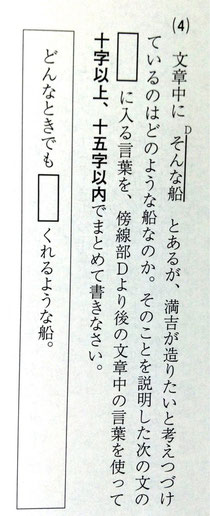 (4) 文章中に そんな船 とあるが、満吉が造りたいと考えつづけ
D
ているのはどのような船なのか。そのことを説明した次の文の
に入る言葉を、傍線部Dより後の文章中の言葉を使って
十字以上、十五字以内でまとめて書きなさい。
どんなときでも くれるような船。